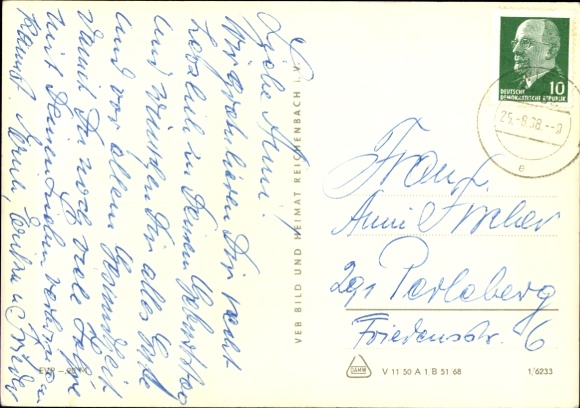 Liebe Anni!
Wir gratulieren Dir recht
herzlich zu Deinem Geburtstag
und wünschen Dir alles Gute
und vor allem Gesundheit
damit Du noch viele Jahre
mit Deinen Lieben
kannst. Erika u.
VEB BILD UND HEIMAT REICHENBACH i. V.
10
DEUTSCHE
DEMOKRATISCHE REPUBLIK
25.-8.68.--9
e
Frau
Anni Fischer
291 Perleberg
Friedensstr. 6
EVP
DAMW
V 11 50 A 1 B 51 68
1/6233